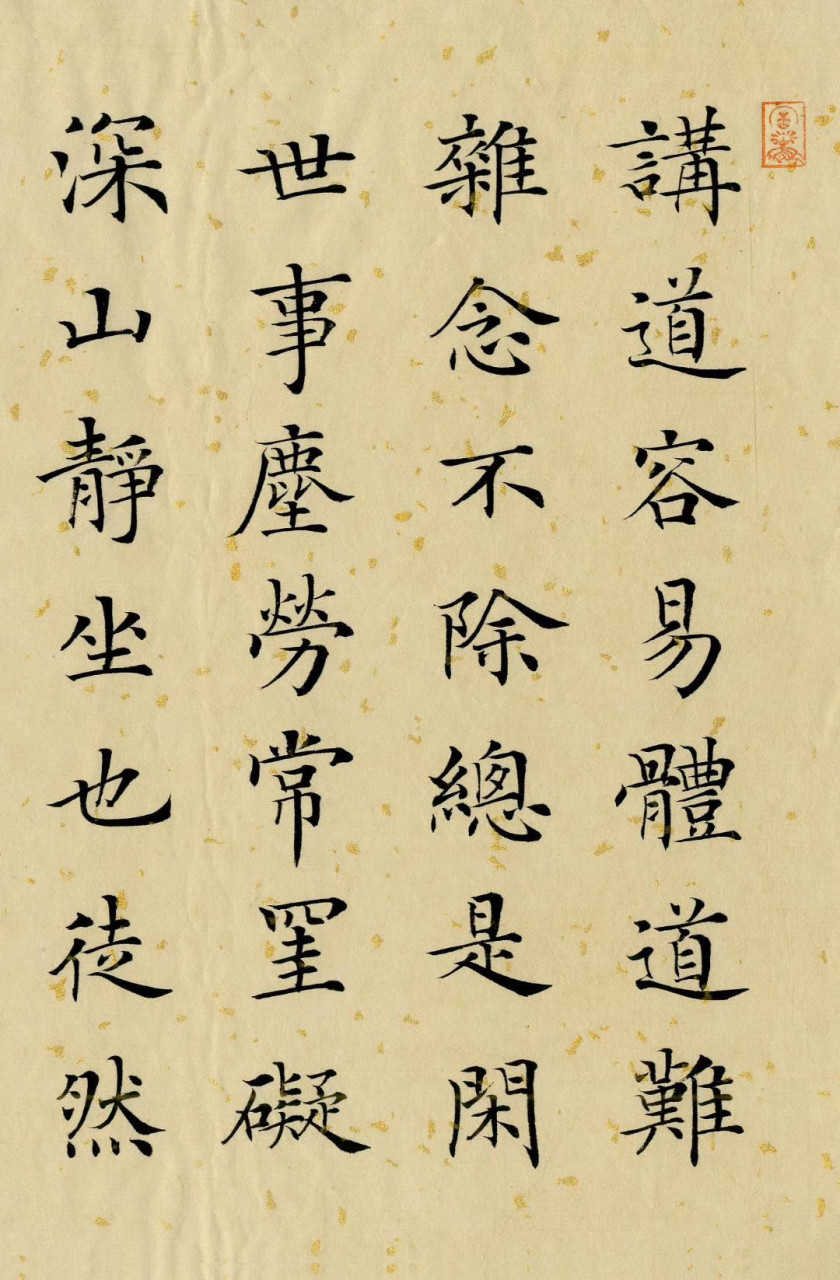 講道容易體道難
雜念不除總是閑
世事塵勞常罣礙
深山靜坐也徒然